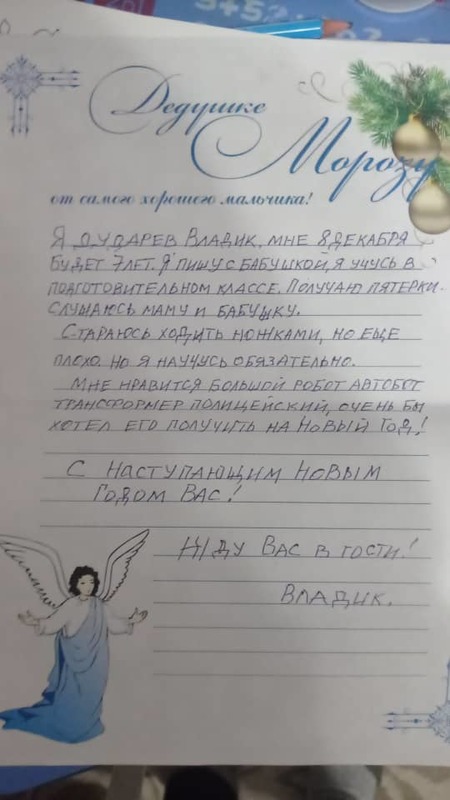 Дедушке
Морозу
от самого хорошего мальчика!
Я ДУДАРЕВ ВЛАДИК, МНЕ 8 ДЕКАБРЯ
БУДЕТ 7 ЛЕТ. Я ПИШУ С БАБУШКОЙ, Я УЧУСЬ В
ПОДГОТОВИТЕЛЬНОМ КЛАССЕ. ПОЛУЧАЮ ПЯТЕРКИ.
СЛУШАЮСЬ МАМУ И БАБУШКУ.
СТАРАЮСЬ ХОДИТЬ НОЖКАМИ, НО ЕЩЕ
ПЛОХО. НО Я НАУЧУСЬ ОБЯЗАТЕЛЬНО.
МНЕ НРАВИТСЯ БОЛЬШОЙ РОБОТ АВТОБОТ
ТРАНСФОРМЕР ПОЛИЦЕЙСКИЙ, ОЧЕНЬ БЫ
ХОТЕЛ ЕГО ПОЛУЧИТЬ НА НОВЫЙ ГОД!
С НАСТУПАЮЩИМ НОВЫМ
ГОДОМ ВАС!
ЖДУ ВАС В ГОСТИ!
ВЛАДИК.